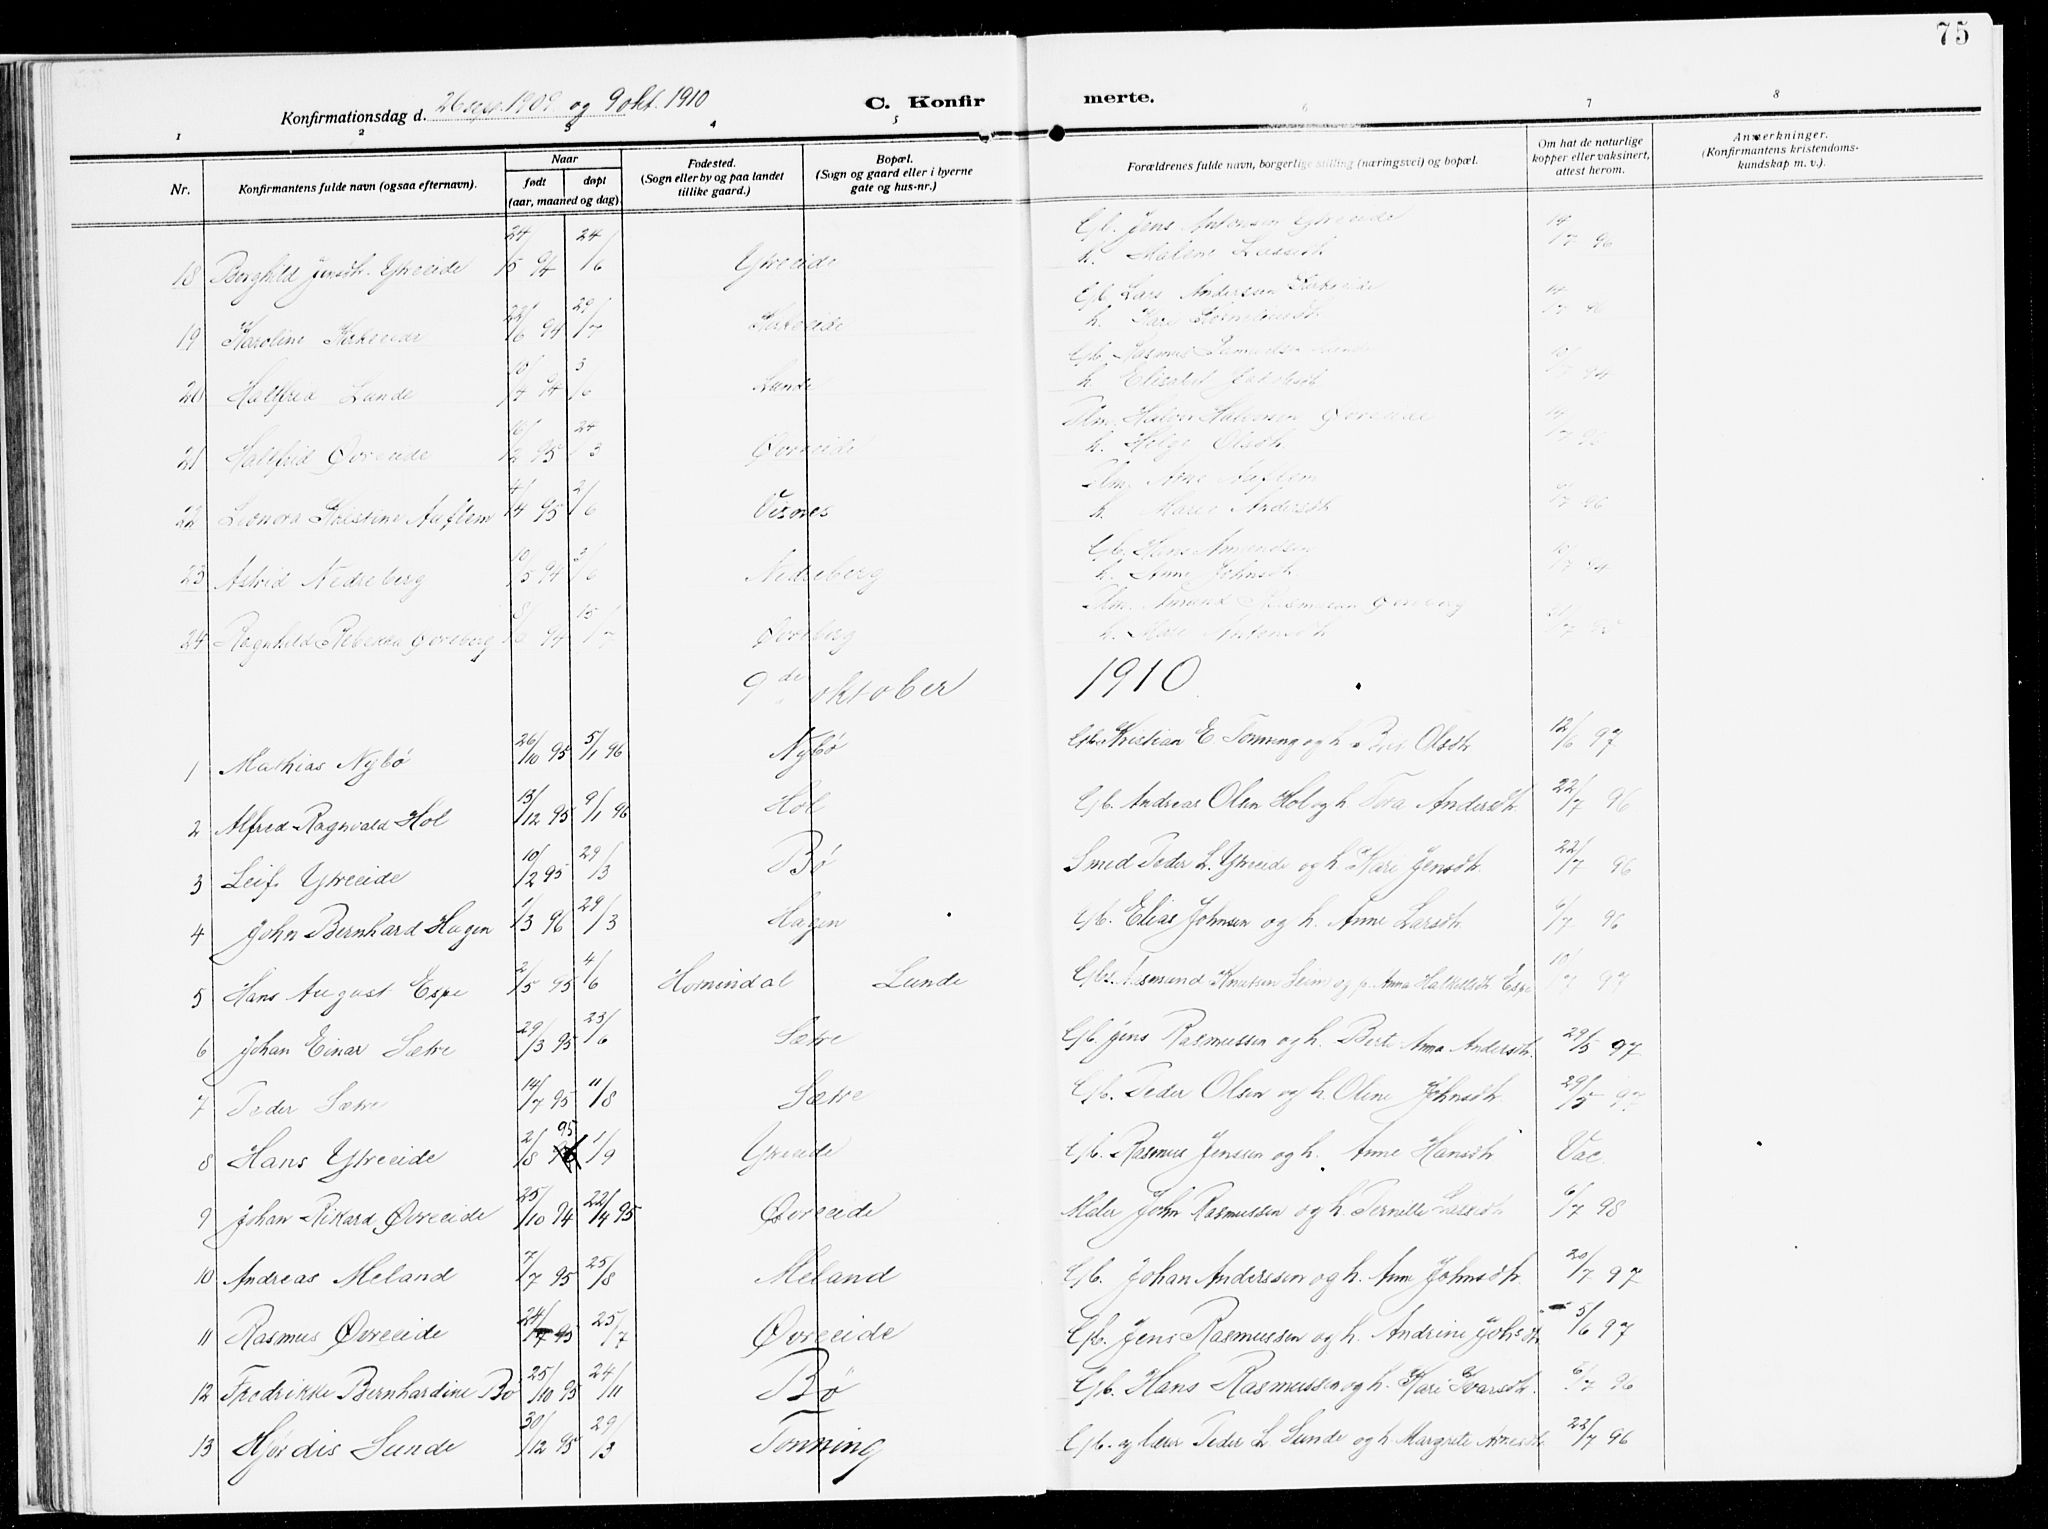 75
Konfirmationsdag d. 26 sept. 1909 og 9 okt. 1910 C. Konfirmerte.
1 2 3 4 5 6 7 8
Nr. Konfirmantens fulde navn (ogsaa efternavn). Naar født døpt (aar, maaned og dag) Fødested. (Sogn eller by og paa landet tillike gaard.) Bopæl. (Sogn og gaard eller i byerne gate og hus-nr.) Forældrenes fulde navn, borgerlige stilling (næringsvei) og bopæl. Om hat de naturlige kopper eller vaksinert, attest herom. Anmerkninger. (Konfirmantens kristendoms-kundskap m. v.).
18 Borghild Jensdt. Ytreeide 24/5 94 24/6 Ytreeide Gb. Jens Antonsen Ytreeide 14/7 96
h. Malene Lassedt.
19 Karoline Kirkeeide 22/6 94 29/7 Gb. Lars Anderssen 14/7 96
h. Kari
20 Halfrid Lunde 10/4 94 3/6 Lunde Gb. Rasmus 10/7 94
h. Elisabet
21 Halfrid Øvreeide 16/2 95 24/3 Øvreeide Plm. Øvreeide 14/7 96
h. Helge Olsdt.
22 Leonora Kristine Auflem 4/4 95 2/6 Visnes Plm. Arne Auflem 96
h. Marie Andersdt
23 Astrid Nedreberg 10/5 94 3/6 Nedreberg Gb. Hans Amundsen 10/7 94
h. Anne Johnsdt
24 Ragnhild Rebekka Øvreberg 8/6 94 15/7 Øvreberg Plm. Amund Rasmussen Øvreberg
h. Mari Antonsdt
9de oktober 1910
1 Mathias Nybø 26/10 95 5/1 96 Nybø Gb. Kristian E. Tonning og h. Olsdt. 12/6 97
2 Alfred Ragnvald Hol 13/12 95 9/1 96 Hol Gb. Andreas Olsen Hol og h. Tora Andersdt. 22/7 96
3 Leif Ytreeide 10/2 95 29/3 Bø Smed Peder L. Ytreeide og h. Kari Jensdt. 22/7 96
4 John Bernhard Hagen 1/3 96 29/3 Hagen Gb. Elias Johnsen og h. Anne Larsdt. 6/7 96
5 Hans August Espe 2/5 95 4/6 Hornindal Lunde Gbs. Asmund Knutsen Seim og p. Anna Halkellsdt. Espe 10/7 97
6 Johan Einar Sætre 29/3 95 23/6 Sætre Gb. Jens Rasmussen og h. Berte Anna Andersdt. 29/5 97
7 Peder Sætre 14/7 95 11/8 Sætre Gb. Peder Olsen og h. Oline Johnsdt. 29/5 97
8 Hans Ytreeide 2/8 95 1/9 Ytreeide Gb. Rasmus Jenssen og h. Anne Hansdt. Vac.
9 Johan Rikard Øvreeide 25/10 94 22/4 95 Øvreeide Maler John Rasmussen og h. Pernille Lassedt. 6/7 98
10 Andreas Meland 7/7 95 25/8 Meland Gb. Johan Anderssen og h. Anne Johnsdt. 20/7 97
11 Rasmus Øvreeide 24/7 95 25/7 Øvreeide Gb. Jens Rasmussen og h. Andrine Johsdt. 5/6 97
12 Fredrikke Bernhardine Bø 25/10 95 24/11 Bø Gb. Hans Rasmussen og h. Kari Ivarsdt. 6/7 96
13 Hjørdis Lunde 30/12 95 29/3 Tonning Gb. og lærer Peder L. Lunde og h. Margrete Arnesdt. 22/7 96